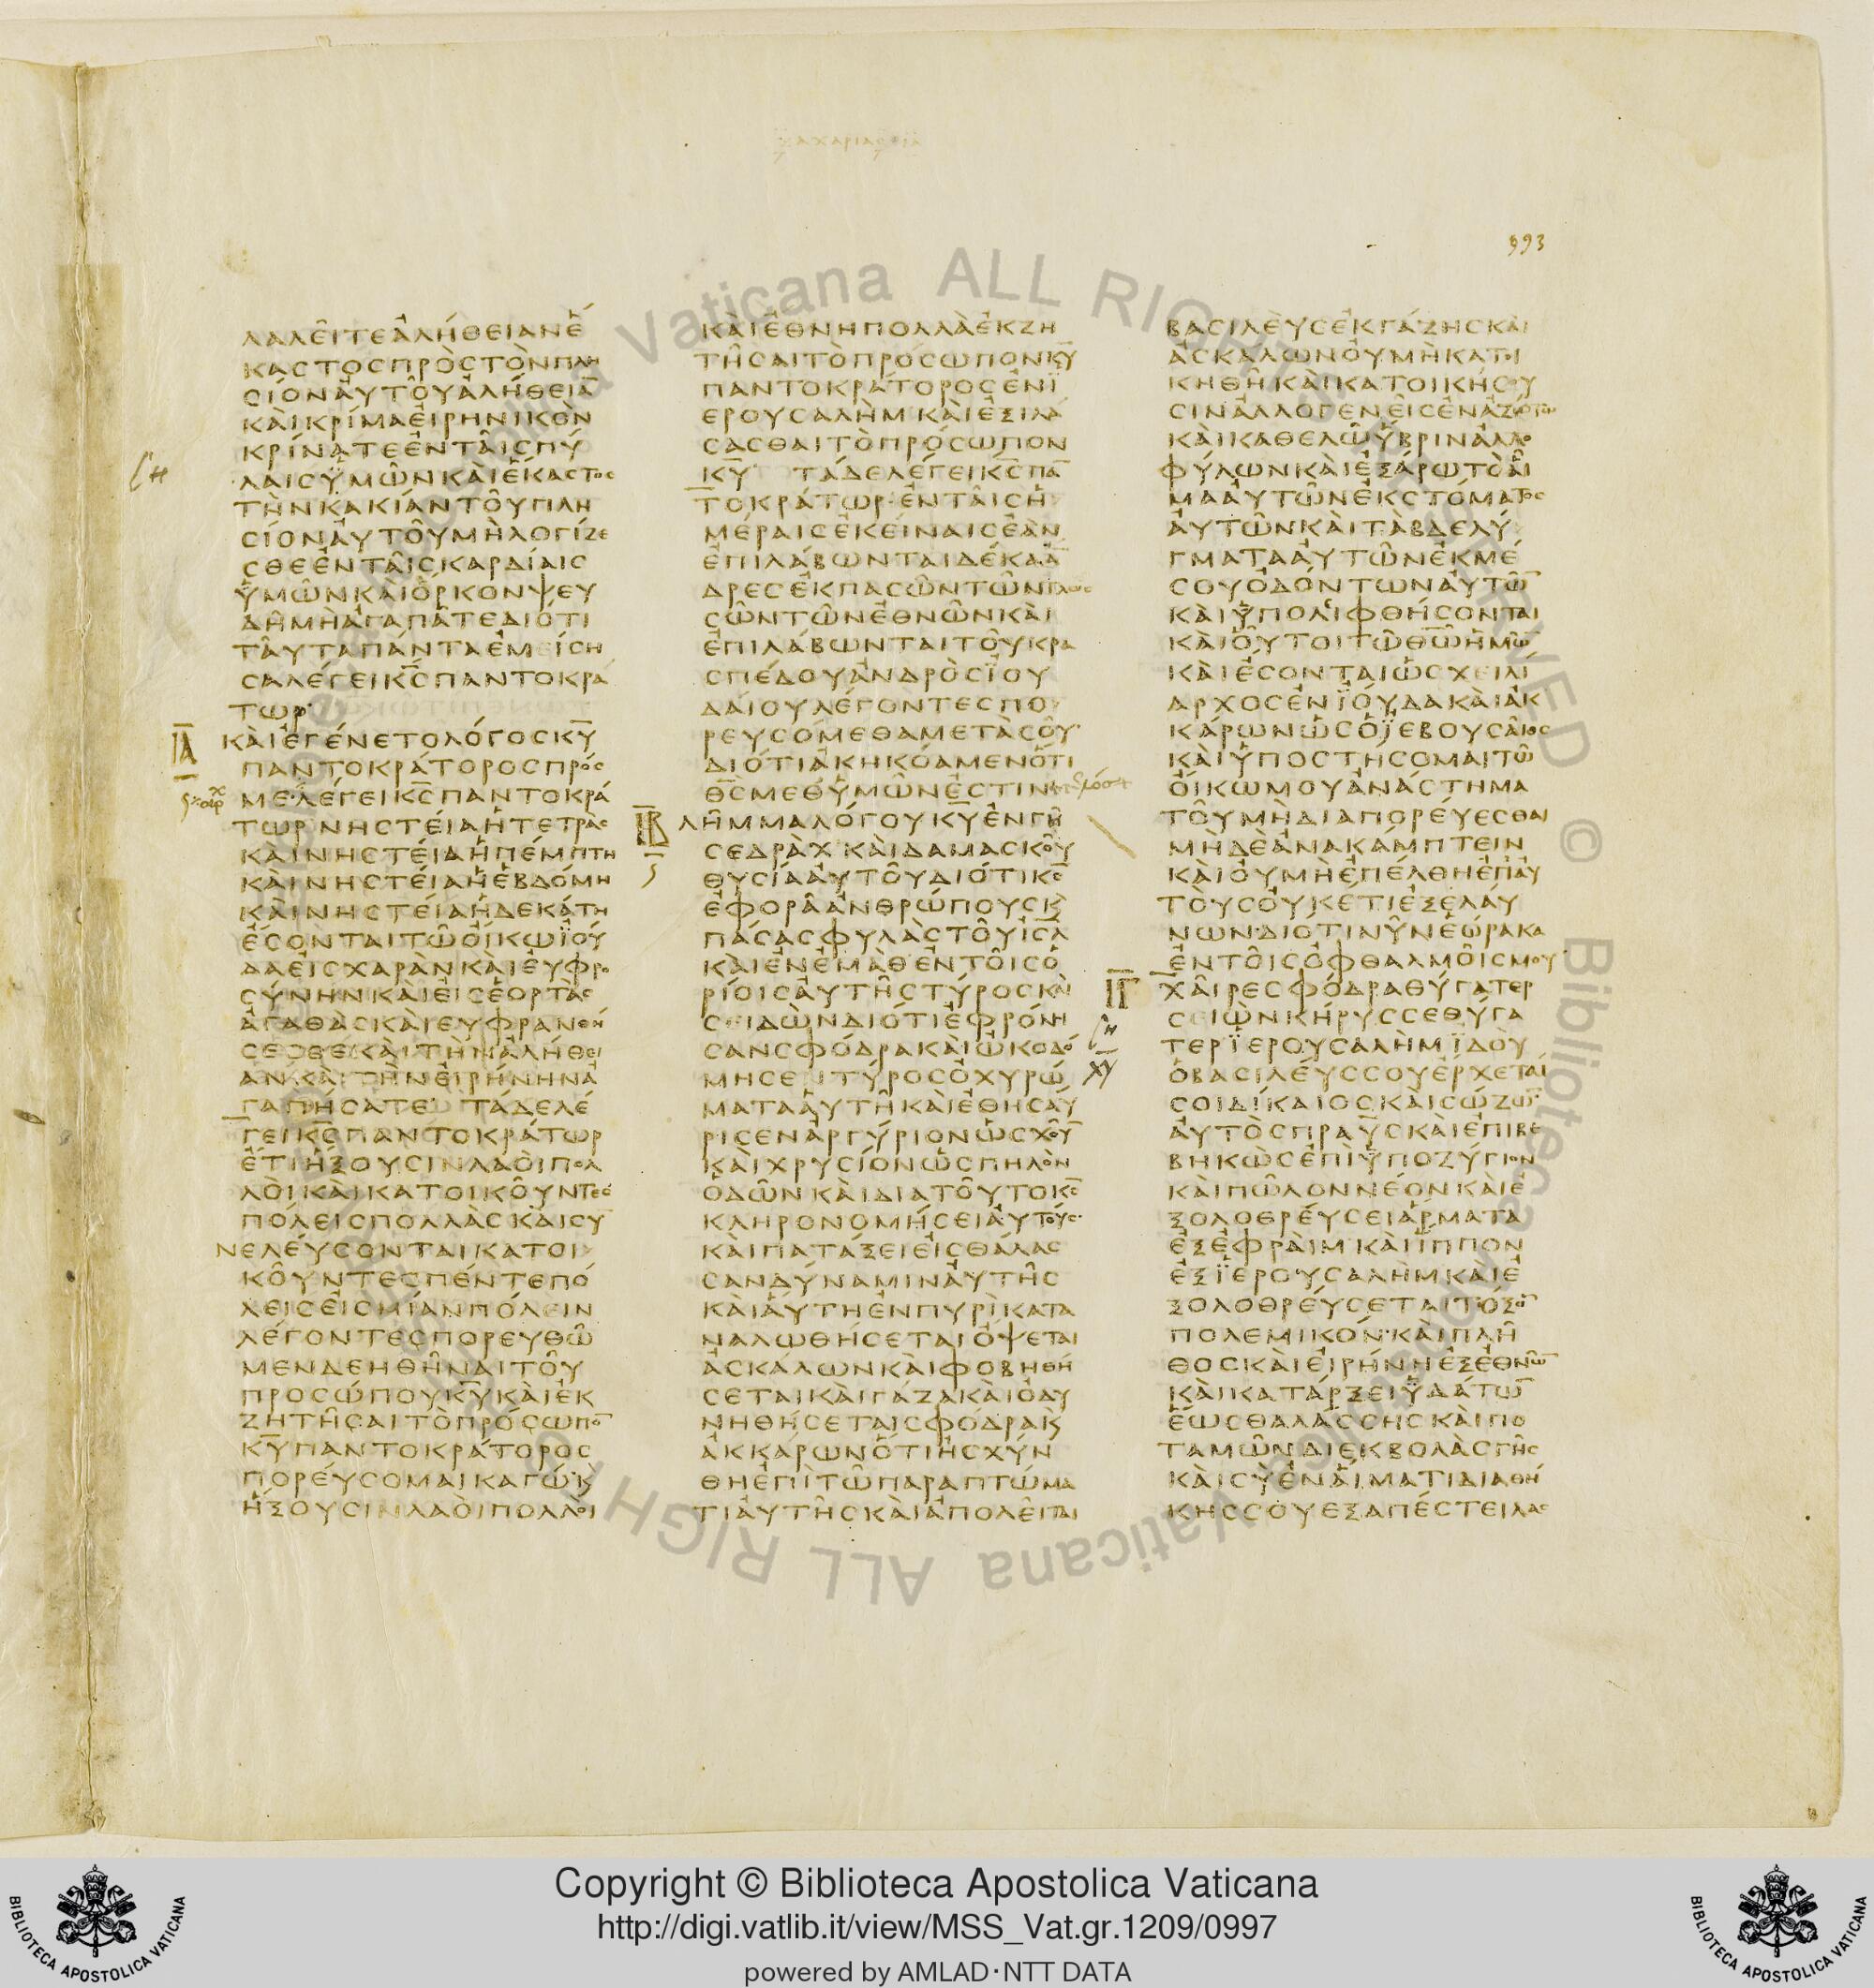 ζαχαριας
993
λαλεῖτε ἀλήθειαν ἕ
καστος πρὸς τὸν πλη
σίον αὐτοῦ ἀλήθεια̅
καὶ κρίμα εἰρηνικὸν
κρίνατε ἐν ταῖς πύ
λαις ὑμῶν καὶ ἕκαστος
τὴν κακίαν τοῦ πλη
σίον αὐτοῦ μὴ λογίζε
σθε ἐν ταῖς καρδίαις
ὑμῶν καὶ ὅρκον ψευ
δῆ μὴ ἀγαπᾶτε διότι
ταῦτα πάντα ἐμείση
σα λέγει κ̅ς̅ παντοκρά
τωρ·
ΙΑ
καὶ ἐγένετο λόγος κ̅υ̅
παντοκράτορος πρός
με· λέγει κ̅ς̅ παντοκρά
τωρ νηστεία ἡ τετρὰς
καὶ νηστεία ἡ πέμπτη
καὶ νηστεία ἡ ἑβδόμη
καὶ νηστεία ἡ δεκάτη
ἔσονται τῷ οἴκῳ ϊού
δα εἰς χαρὰν καὶ εὐφρο
σύνην καὶ εἰς ἑορτὰς
ἀγαθὰς καὶ εὐφρανθή
σεσθε καὶ τὴν ἀλήθει
αν καὶ τὴν εἰρήνην ἀ
γαπήσατε· τάδε λέ
γει κ̅ς̅ παντοκράτωρ
ἔτι ἥξουσιν λαοὶ πολ
λοὶ καὶ κατοικοῦντες
πόλεις πολλὰς καὶ συ
νελεύσονται κατοι
κοῦντες πέντε πό
λεις εἰς μίαν πόλειν
λέγοντες πορευθῶ̅
μεν δεηθῆναι τοῦ
προσώπου κ̅υ̅ καὶ ἐκ
ζητῆσαι τὸ πρόσωπο̅
κ̅υ̅ παντοκράτορος
πορεύσομαι καγώ· κὶ
ἥξουσιν λαοὶ πολλοὶ
καὶ ἔθνη πολλὰ ἐκζη
τῆσαι τὸ πρόσωπον κ̅υ̅
παντοκράτορος ἐν ϊ
ερουσαλὴμ καὶ ἐξιλά
σασθαι τὸ πρόσωπον
κ̅υ̅ τάδε λέγει κ̅ς̅ πα̅
τοκράτωρ· ἐν ταῖς ἡ
μέραις ἐκείναις ἐὰν
ἐπιλάβωνται δέκα ἄ̅
δρες ἐκ πασῶν τῶν γλως
σῶν τῶν ἐθνῶν καὶ
ἐπιλάβωνται τοῦ κρα
σπέδου ἀνδρὸς ϊου
δαίου λέγοντες πο
ρευσόμεθα μετὰ σοῦ·
διότι ἀκηκόαμεν ὅτι
θ̅ς̅ μεθ ὑμῶν ἐστιν
ΙΒ
λῆμμα λόγου κ̅υ̅ ἐν γῇ
σεδρὰχ καὶ δαμασκοῦ
θυσία αὐτοῦ διότι κ̅ς̅
ἐφορᾷ ἀνθρώπους κὶ
πάσας φυλὰς τοῦ ι̅σ̅λ̅
καὶ ἐν ἐμὰθ ἐν τοῖς ὁ
ρίοις αὐτῆς τύρος καὶ
σειδὼν διότι ἐφρόνη
σαν σφόδρα καὶ ᾠκοδό
μησεν τύρος ὀχυρώ
ματα αὐτῇ καὶ ἐθησαύ
ρισεν ἀργύριον ὡς χοῦν
καὶ χρυσίον ὡς πηλὸν
ὁδῶν καὶ διατοῦτο κ̅ς̅
κληρονομήσει αὐτούς·
καὶ πατάξει εἰς θάλας
σαν δύναμιν αὐτῆς
καὶ αὕτη ἐν πυρὶ κατα
ναλωθήσεται ὄψεται
ἀσκαλων καὶ φοβηθή
σεται καὶ γάζα καὶ ὀδυ
νηθήσεται σφόδρα κὶ
ἀκκάρων ὅτι ἠσχύν
θη ἐπὶ τῷ παραπτώμα
τι αὐτῆς καὶ ἀπολεῖται
βασιλεὺς ἐκ γάζης καὶ
ἀσκαλων οὐ μὴ κατοι
κηθῇ καὶ κατοικήσου
σιν ἀλλογενεῖς ἐν ἀζώτῳ
καὶ καθελῶ ὕβριν ἀλλο
φύλων καὶ ἐξάρω τὸ αἷ
μα αὐτῶν ἐκ στόματος
αὐτῶν καὶ τὰ βδελύ
γματα αὐτῶν ἐκ μέ
σου ὀδόντων αὐτῶ̅
καὶ ὑπολιφθήσονται
καὶ οὗτοι τῷ θ̅ω̅ ἡμῶ̅
καὶ ἔσονται ὡς χειλί
αρχος ἐν ϊούδα καὶ ἀκ
κάρων ὡς ὁ ϊεβουσαῖος
καὶ ὑποστήσομαι τῷ
οἴκῳ μου ἀνάστημα
τοῦ μὴ διαπορεύεσθαι
μὴδὲ ἀνακάμπτειν
καὶ οὐ μὴ ἐπέλθῃ ἐπ αὐ
τοὺς οὐκέτι ἐξελαύ
νων· διότι νῦν ἑώρακα
ἐν τοῖς ὀφθαλμοῖς μου·
ΙΓ
χαῖρε σφόδρα θύγατερ
σειὼν κήρυσσε θύγα
τερ ϊερουσαλήμ ϊδοὺ
ὁ βασιλεύς σου ἔρχεταί
σοι δίκαιος καὶ σώζω̅
αὐτὸς πραῢς καὶ ἐπιβε
βηκὼς ἐπὶ ὑποζύγιον
καὶ πῶλον νέον καὶ ἐ
ξολοθρεύσει ἅρματα
ἐξ ἐφράιμ καὶ ἵππον
ἐξ ϊερουσαλὴμ καὶ ἐ
ξολοθρεύσεται τόξο̅
πολεμικόν· καὶ πλῆ
θος καὶ εἰρήνη ἐξ ἐθνῶ̅
καὶ κατάρξει ὑδάτω̅
ἕως θαλάσσης καὶ πο
ταμῶν διεκβολὰς γῆς
καὶ σὺ ἐν αἵματι διαθή
κης σου εξαπέστειλας
ALL RIGHTS RESERVED © Biblioteca Apostolica Vaticana
Copyright © Biblioteca Apostolica Vaticana
http://digi.vatlib.it/view/MSS_Vat.gr.1209/0997
powered by AMLAD·NTT DATA
BIBLIOTECA APOSTOLICA VATICANA
BIBLIOTECA APOSTOLICA VATICANA